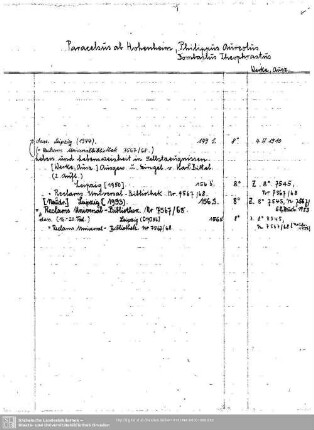 Paracelsus ab Hohenheim, Philippus Aureolus
Bombastus Theophrastus
Werke, Ausz.
dass. Leipzig (1944). 199 S. 8° 4 A 1910
(= Reclams Universalbibliothek 7567/68.)
Leben und Lebensweisheit in Selbstzeugnissen.
[Werke, Ausz.] Ausgew. u. eingel. v. Karl Bittel.
(2. Aufl.)
Leipzig [1950]. 156 S. 8° Z. 8° 7545,
= Reclams Universal-Bibliothek. Nr. 7567/68. Nr 7567/68
[Neudr.] Leipzig [1953]. 156 S. 8° Z. 8° 7545, N 7567/
= Reclams Universal-Bibliothek Nr 7567/68. 68 Neudr. 1953
dass. Leipzig 156 S 8° Z. 8° 7545,
= Reclams Universal-Bibliothek. Nr 7567/68 N 7567/68